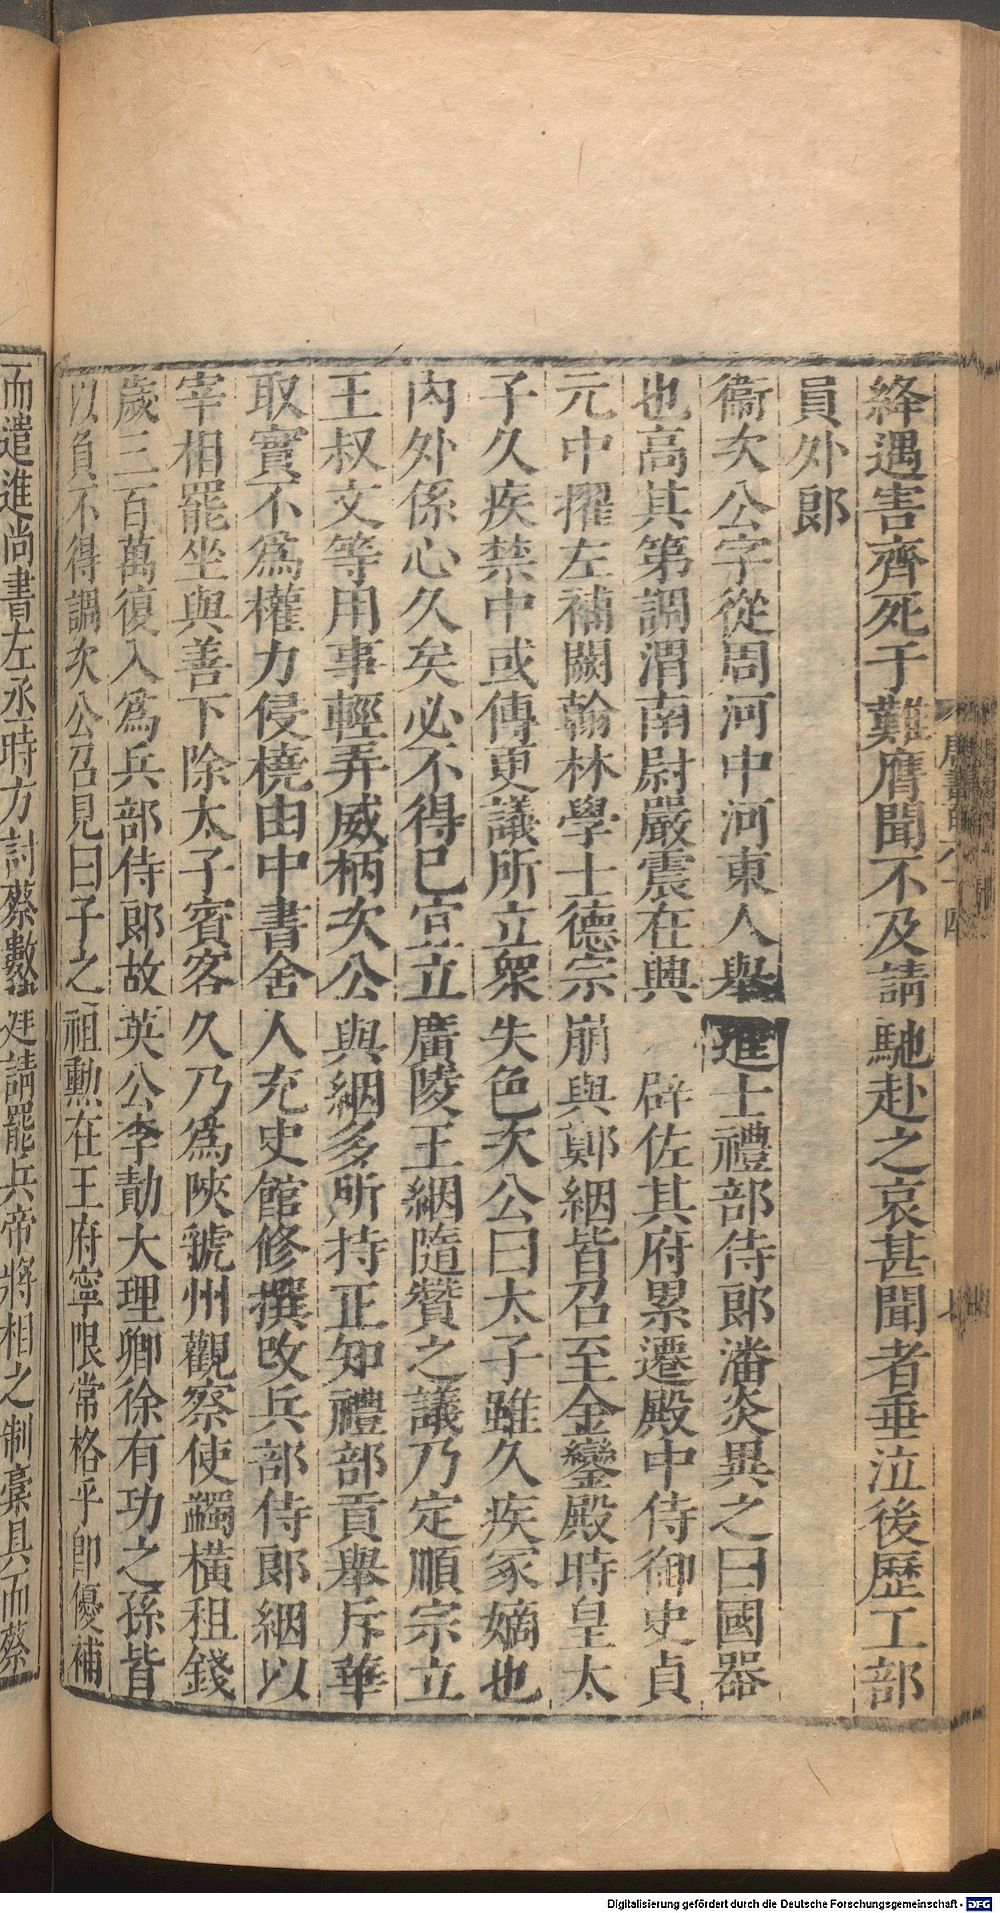 絳遇害齊死于難膺聞不及請馳赴之哀甚聞者垂泣後歷工部
員外郎
衞次公字從周河中河東人舉進士禮部侍郎潘炎異之曰國器
也高其第調渭南尉嚴震在興 辟佐其府累遷殿中侍御史貞
元中擢左補闕翰林學士德宗崩與鄭絪皆召至金鑾殿時皇太
子久疾禁中或傳更議所立衆失色次公曰太子雖久疾冢嫡也
內外係心久矣必不得已宜立廣陵王絪隨贊之議乃定順宗立
王叔文等用事輕弄威柄次公與絪多所持正知禮部貢舉斥華
取實不爲權力侵橈由中書舍人充史館修撰改兵部侍郎絪以
宰相罷坐與善下除太子賓客久乃爲陝虢州觀察使蠲橫租錢
歲三百萬復入爲兵部侍郎故英公李勣大理卿徐有功之孫皆
以負不得調次公召見曰子之祖勳在王府寧限常格乎卽優補
而遣進尚書左丞時方討蔡數建請罷兵帝將相之制稾具而蔡
Digitalisierung gefördert durch die Deutsche Forschungsgemeinschaft - DFG